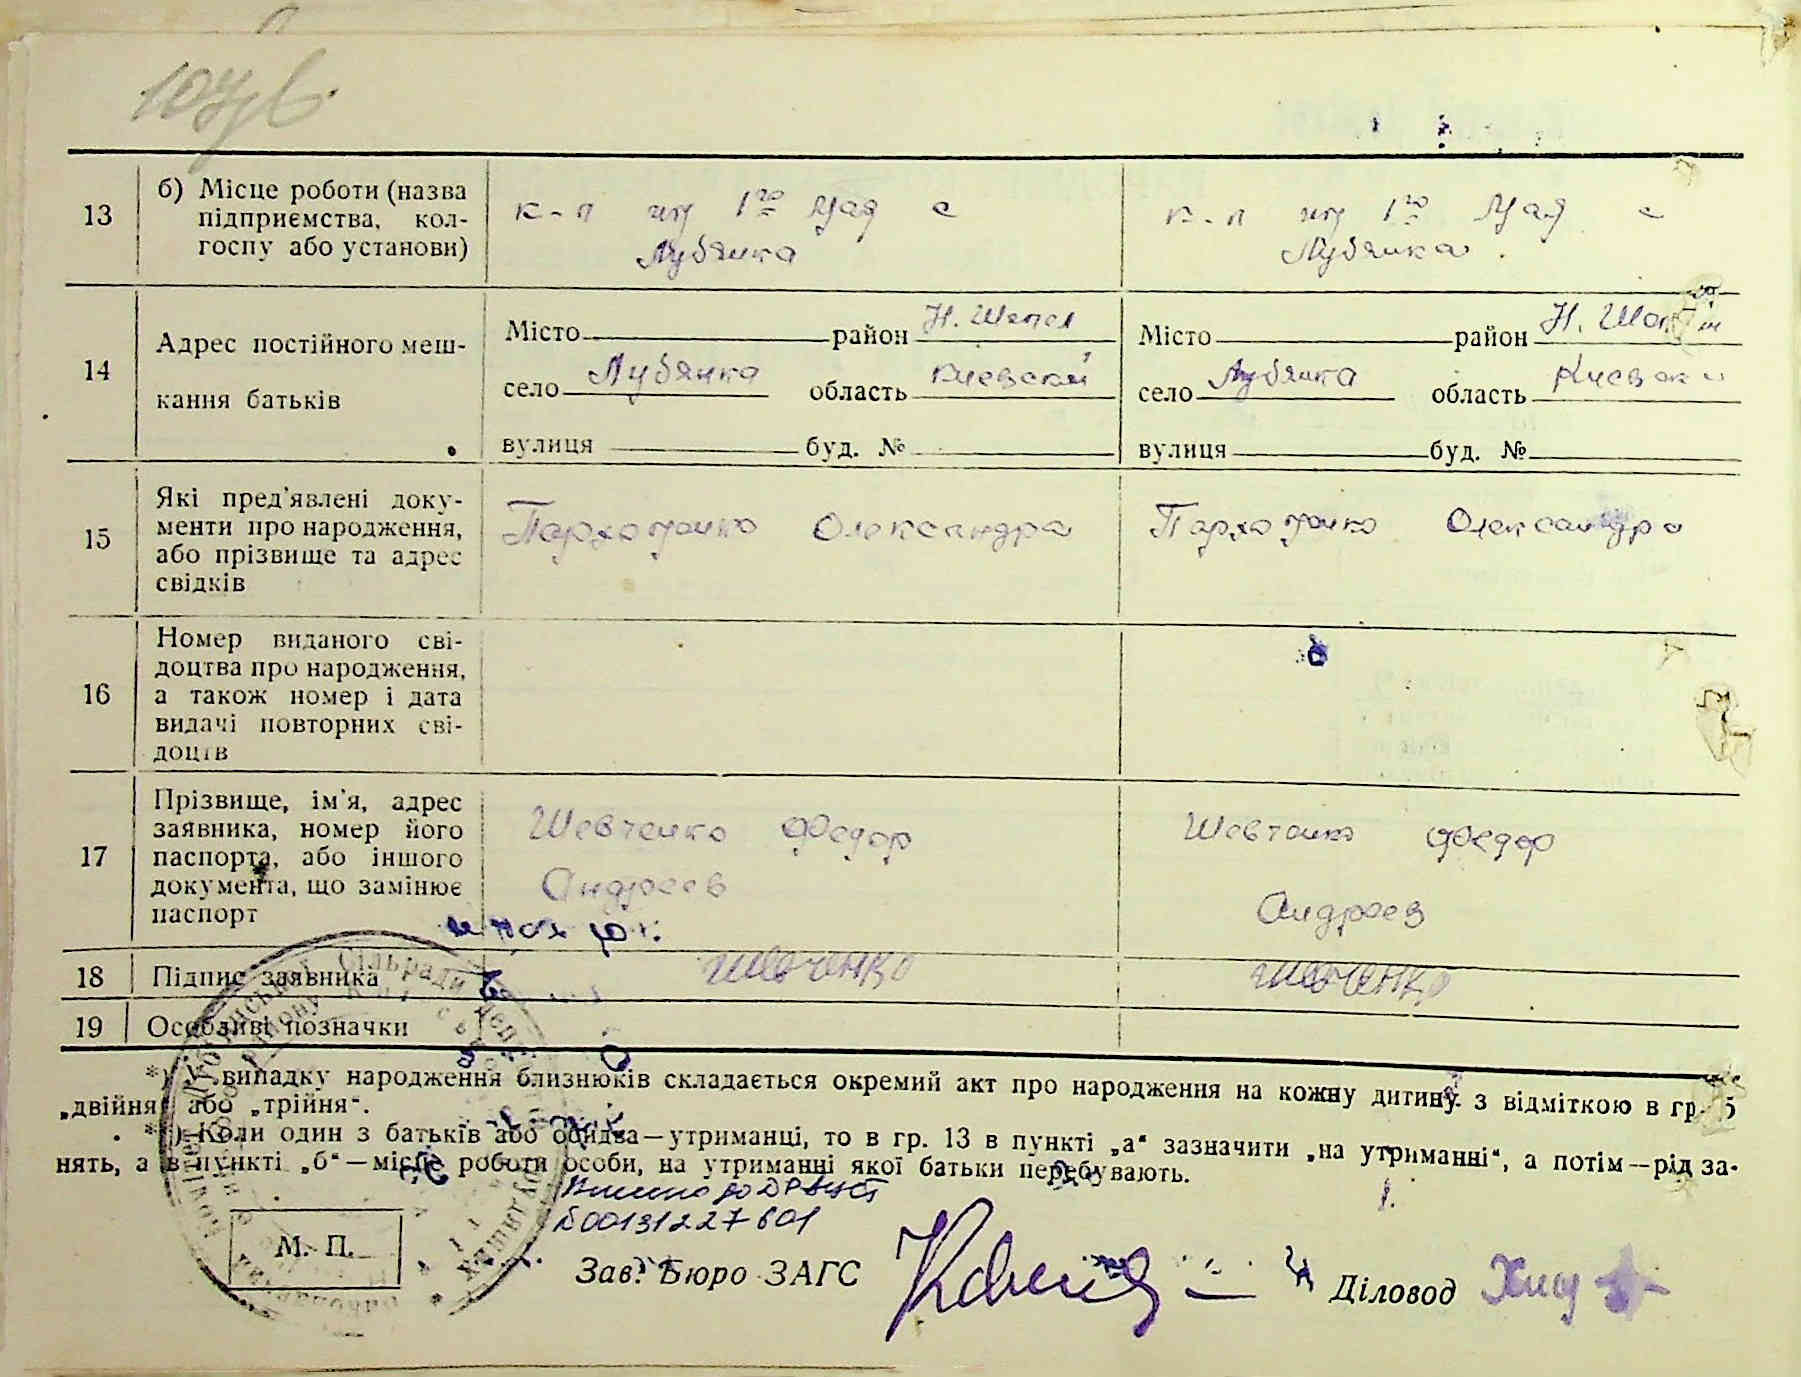 13
б) Місце роботи (назва
підприємства, кол-
госпу або установи)
к-п им 1го Мая с
Лубянка
к-п им 1го Мая с
Лубянка
14
Адрес постійного меш-
кання батьків
Місто район Н. Шепел
село Лубянка область Киевской
вулиця буд. №
Місто район Н. Шеп
село Лубянка область Киевск
вулиця буд. №
15
Які пред'явлені доку-
менти про народження,
або прізвище та адрес
свідків
Пархоменко Олександра
Пархоменко Олександра
16
Номер виданого сві-
доцтва про народження,
а також номер і дата
видачі повторних сві-
доцтв
17
Прізвище, ім'я, адрес
заявника, номер його
паспорта, або іншого
документа, що замінює
паспорт
Шевченко Федор
Андреев
Шевченко Федор
Андреев
18 Підпис заявника Шевченко Шевченко
19 Особливі позначки
*) У випадку народження близнюків складається окремий акт про народження на кожну дитину з відміткою в гр. 5
„двійня“ або „трійня“.
**) Коли один з батьків або обидва—утриманці, то в гр. 13 в пункті „а“ зазначити „на утриманні“, а потім—рід за-
нять, а в пункті „б“—місце роботи особи, на утриманні якої батьки перебувають.
00131227601
М. П.
Зав. Бюро ЗАГС
Діловод